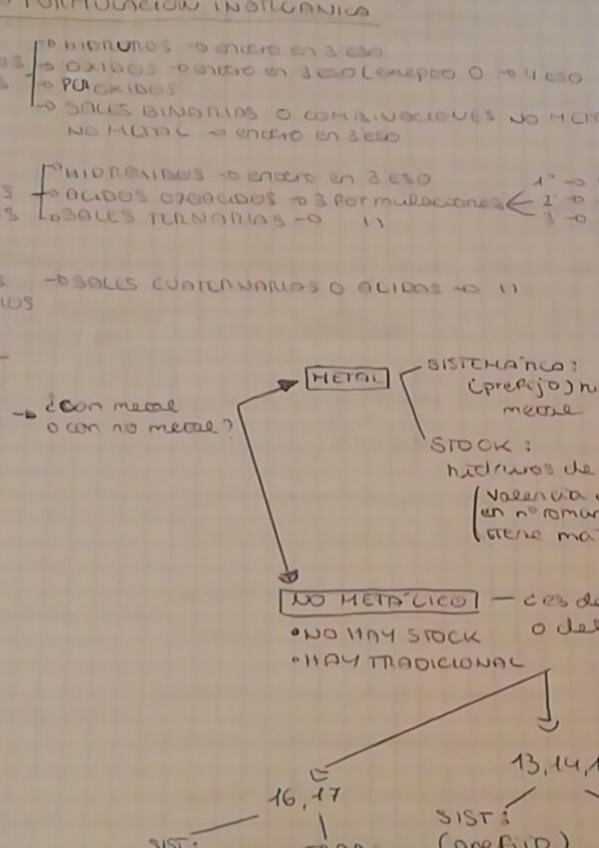 FORMULACIÓN INORGÁNICA
HIDRUROS → entero en 3 eso
OXIDOS → entero en 3 eso (excepto O → 4 eso
PEROXIDOS
SALES BINARIAS O COMBINACIONES NO MET
NO METAL → entero en 3 eso
HIDROXIDOS → entero en 3 ESO
ACIDOS OXOACIDOS → 3 Formulaciones 1º →
2º →
3 →
SALES TERNARIAS → 11
→ SALES CUATERNARIAS O ÁCIDAS → 11
→ ¿con metal
o con no metal?
METAL
SISTEMÁTICO:
(prefijo) hi
metal
STOCK:
hidruros de
(valencia
en nº roman
tiene má
NO METÁLICO — ¿es de
o del
•NO HAY STOCK
•HAY TRADICIONAL
16,17
13,14,1
SIST:
SIST:
(prefijo)